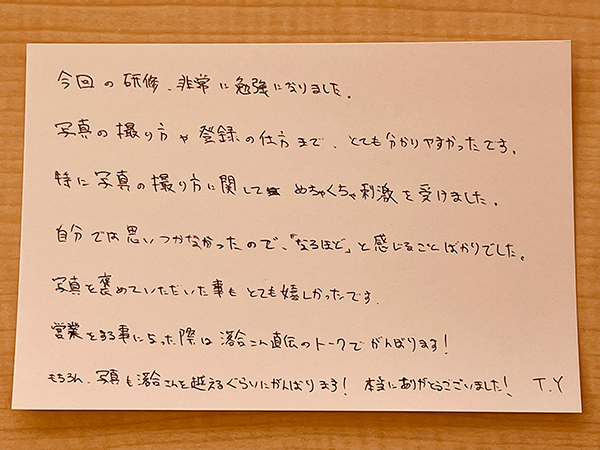 今回の研修、非常に勉強になりました。
写真の撮り方や登録の仕方まで、とても分かりやすかったです。
特に写真の撮り方に関して めちゃくちゃ刺激を受けました。
自分では思いつかなかったので、「なるほど」と感じることばかりでした。
写真を褒めていただいた事もとても嬉しかったです。
営業をする事になった際は落合さん直伝のトークでがんばります!
もちろん、写真も落合さんを越えるぐらいにがんばります! 本当にありがとうございました! T.Y